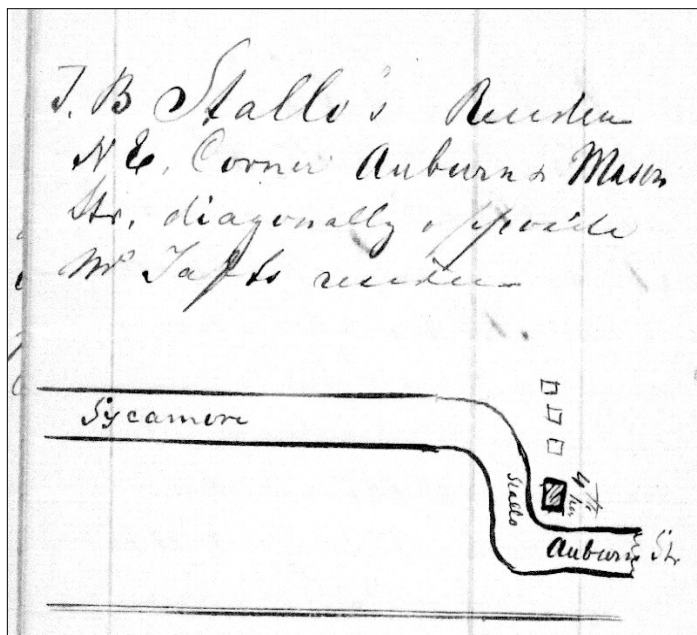 J. B Stallo's Residen
N E, Corner Auburn & Mason
Str, diagonally opposite
Mr Tafts residen
Sycamore
Stallo
4th
hs
Auburn Str